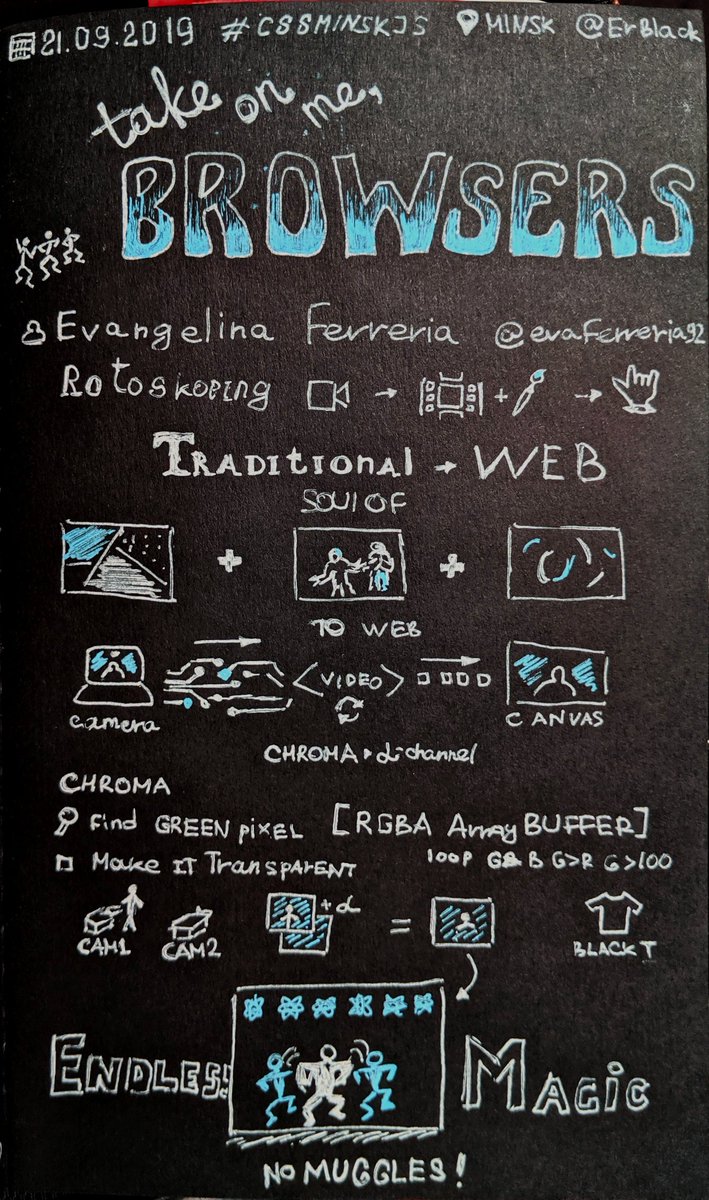 21.09.2019 #CSSMINSKJS MINSK @ErBlack
take on me,
BROWSERS
Evangelina Ferreria @evaFerreria92
Rotoskoping
TRADITIONAL → WEB
SOUl OF
TO WEB
<VIDEO>
camera CANVAS
CHROMA → α-channel
CHROMA
Find GREEN pixEL [RGBA Array BUFFER]
Make IT TranspARENT lOOP G&B G>R G>100
+α
=
CAM1 CAM2 BLACK T
ENDLESS MAGIC
NO MUGGLES!